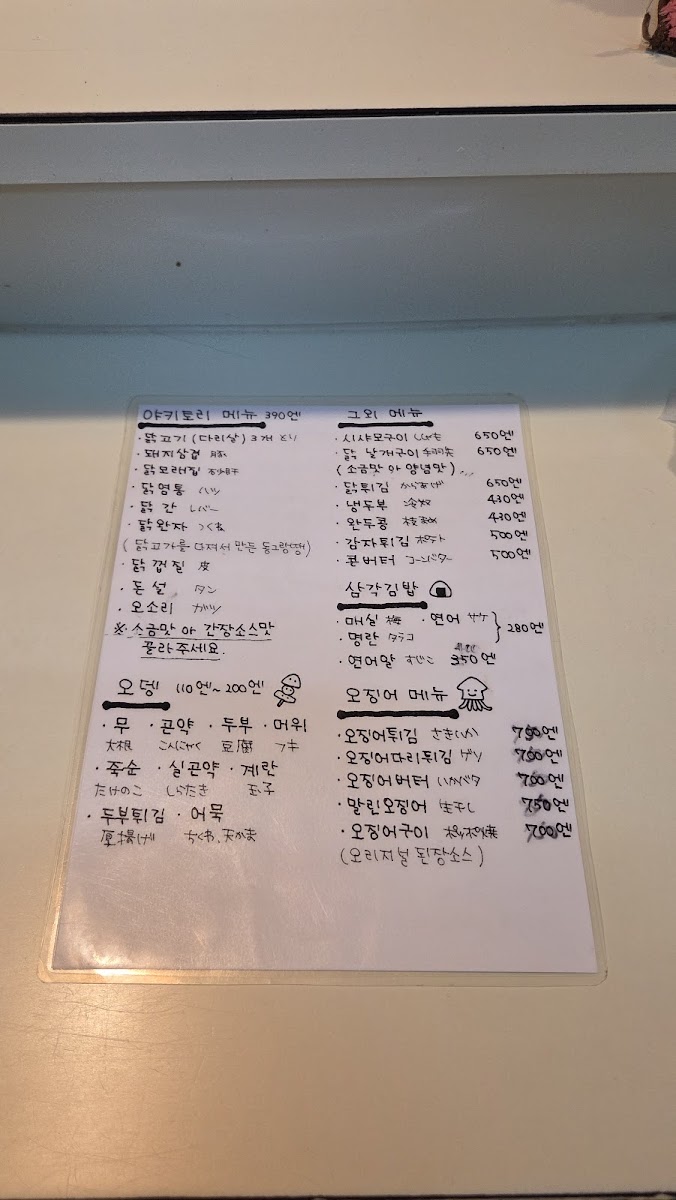 야키토리 메뉴 390엔
· 닭고기 (다리살) 3개 とり
· 돼지삼겹 豚
· 닭모래집 砂肝
· 닭염통 ハツ
· 닭 간 レバー
· 닭완자 つくね
(닭고기를 다져서 만든 동그랑땡)
· 닭 껍질 皮
· 돈 설 タン
· 오소리 ガツ
※ 소금맛 아 간장소스맛
골라주세요.
오뎅 110엔~200엔
· 무 · 곤약 · 두부 · 머위
大根 こんにゃく 豆腐 フキ
· 죽순 · 실곤약 · 계란
たけのこ しらたき 玉子
· 두부튀김 · 어묵
厚揚げ ちくわ、天かま
그외 메뉴
· 시샤모구이 ししゃも 650엔
· 닭 날개구이 手羽先 650엔
(소금맛 아 양념맛)
· 닭튀김 からあげ 650엔
· 냉두부 冷奴 430엔
· 완두콩 枝豆 430엔
· 감자튀김 ポテト 500엔
· 콘버터 コーンバター 500엔
삼각김밥
· 매실 梅 · 연어 サケ
· 명란 タラコ
280엔
· 연어알 すじこ 350엔
오징어 메뉴
· 오징어튀김 さきいか 750엔
· 오징어다리튀김 ゲソ 700엔
· 오징어버터 いかバタ 700엔
· 말린오징어 生干し 750엔
· 오징어구이 ポッポ焼 700엔
(오리지널 된장소스)